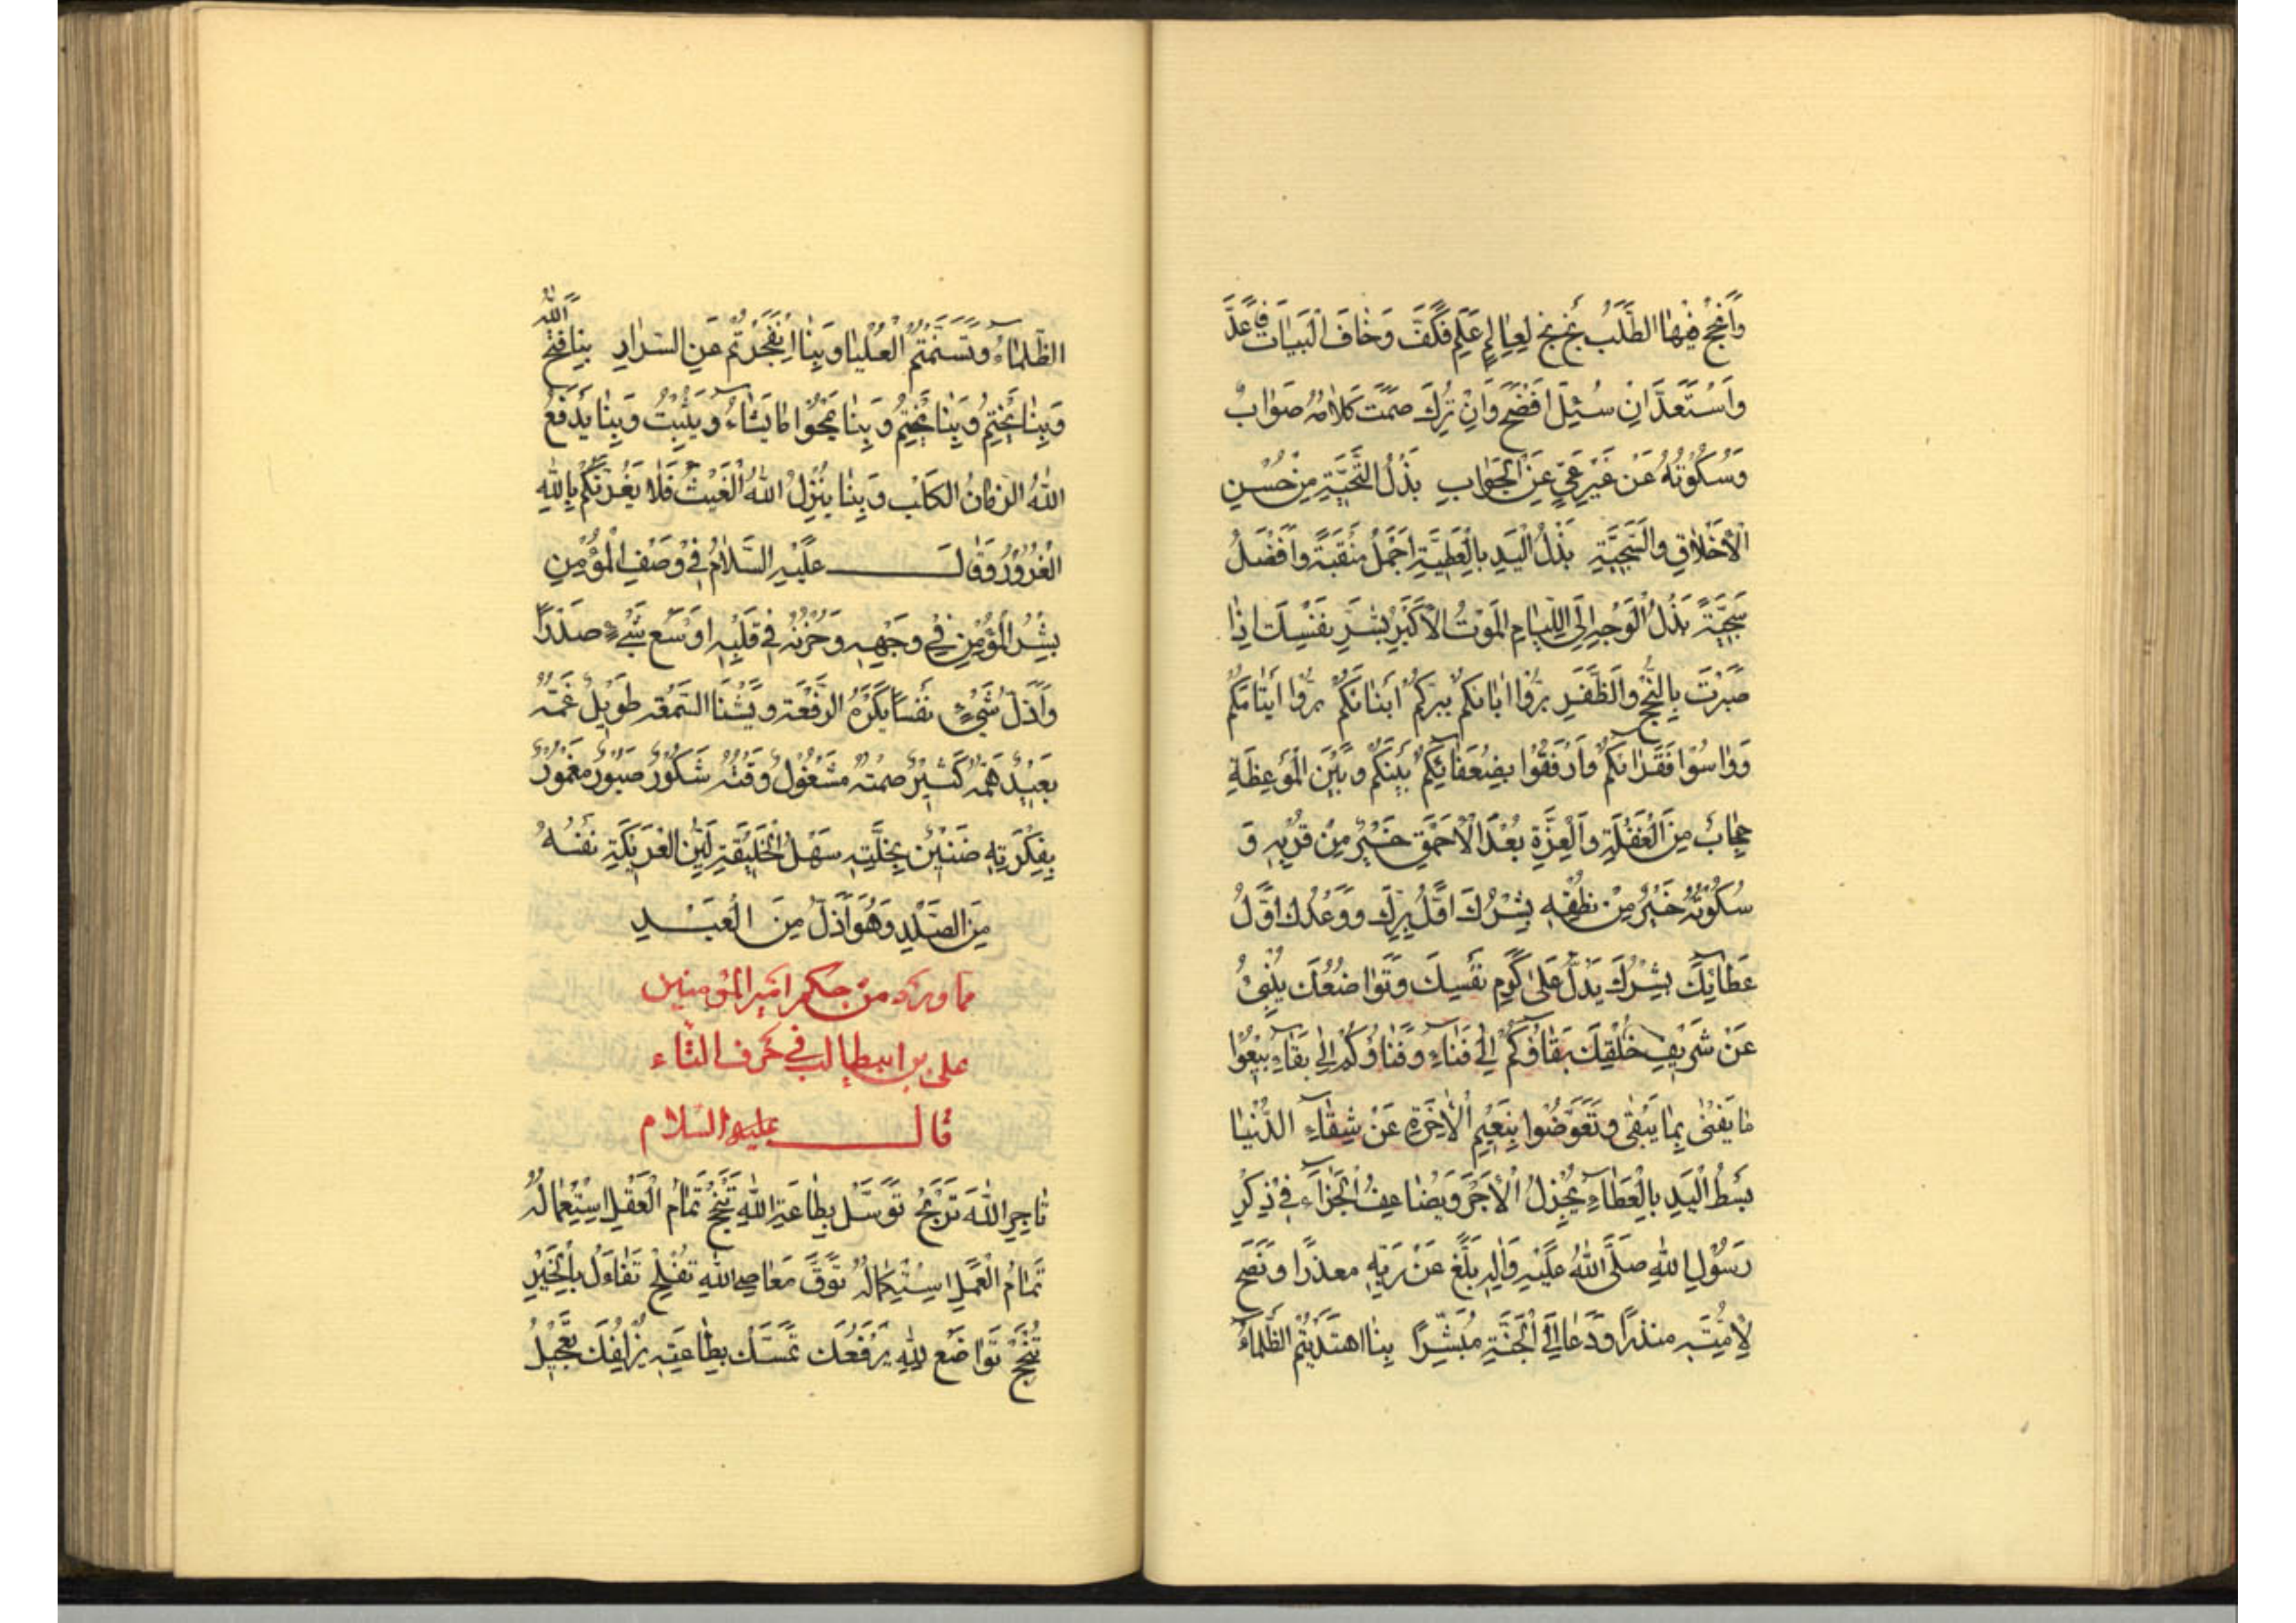 وَأَنْجَحَ فِيْهَا الطَّلَبُ بَخْ بَخْ لِعَالِمٍ عَلِمَ فَكَفَّ وَخَافَ الْبَيَاتَ فَأَعَدَّ
وَاسْتَعَدَّ اِنْ سُئِلَ اَفْصَحَ وَاِنْ تُرِكَ صَمَتَ كَلَامُهُ صَوَابٌ
وَسُكُوتُهُ عَنْ غَيْرِ عَيٍّ عَنِ الْجَوَابِ بَذْلُ التَّحِيَّةِ مِنْ حُسْنِ
الْأَخْلَاقِ وَالسَّجِيَّةِ بَذْلُ الْيَدِ بِالْعَطِيَّةِ اَجْمَلُ مَنْقَبَةً وَاَفْضَلُ
سَجِيَّةً بَذْلُ الْوَجْهِ اِلَى اللِّئَامِ الْمَوْتُ الْأَكْبَرُ بَشِّرْ نَفْسَكَ اِذَا
صَبَرْتَ بِالنُّجْحِ وَالظَّفَرِ بَرُّوا ابَائَكُمْ يَبَرَّكُمْ اَبْنَائَكُمْ بَرُّوا اَيْتَامَكُمْ
وَوَاسُوْا فُقَرَائَكُمْ وَارْفَقُوْا بِضُعَفَائِكُمْ بَيْنَكُمْ وَبَيْنَ الْمَوْعِظَةِ
حِجَابٌ مِنَ الْغَفْلَةِ وَالْعِزَّةِ بُعْدُ الْاَحْمَقِ خَيْرٌ مِنْ قُرْبِهِ وَ
سُكُوْتُهُ خَيْرٌ مِنْ نُطْقِهِ بِشْرُكَ اَوَّلُ بِرِّكَ وَوَعْدُكَ اَوَّلُ
عَطَائِكَ بِشْرُكَ يَدُلُّ عَلَى كَرَمِ نَفْسِكَ وَتَوَاضُعُكَ يُنْبِئُ
عَنْ شَرِيْفِ خُلْقِكَ بَقَاؤُكُمْ اِلَى فَنَاءٍ وَفَنَاؤُكُمْ اِلَى بَقَاءٍ بِيْعُوْا
مَا يَفْنَى بِمَا يَبْقَى وَتَعَوَّضُوا بِنَعِيْمِ الْاٰخِرَةِ عَنْ شِقَاءِ الدُّنْيَا
بَسْطُ الْيَدِ بِالْعَطَاءِ يُجْزِلُ الْاَجْرَ وَيُضَاعِفُ الْجَزَاءَ فِيْ ذِكْرِ
رَسُوْلِ اللهِ صَلَّى اللهُ عَلَيْهِ وَاٰلِهِ بَلَّغَ عَنْ رَبِّهِ معذرًا وَنَصَحَ
لِاُمَّتِهِ منذرًا وَدَعَا اِلَى الْجَنَّةِ مُبَشِّرًا بِنَا اهتَدَيْتُمْ الظَّلْمَاءَ
الظَّلْمَاءَ وَتَسَنَّمْتُمُ الْعُلْيَا وَبِنَا انْفَجَرْتُمْ عَنِ السَّرَارِ بِنَا فَتَحَ اللهُ
وَبِنَا يَخْتِمُ وَبِنَا يَخْتِمُ وَبِنَا يَمْحُوْا مَا يَشَاءُ وَيُثْبِتُ وَبِنَا يَدْفَعُ
اللهُ الزمَانُ الكَلِبْ وَبِنَا يُنْزِلُ اللهُ الْغَيْثَ فَلَا يَغُرَّنَّكُمْ بِاللهِ
الْغُرُوْرُ وَقَالَ عَلَيْهِ السَّلَامُ فِيْ وَصْفِ الْمُؤْمِنِ
بِشْرُ الْمُؤْمِنِ فِيْ وَجْهِهِ وَحُزْنُهُ فِيْ قَلْبِهِ اَوْسَعُ شَيْءٍ صَدْرًا
وَاَذَلُّ شَيْءٍ نَفْسًا يَكْرَهُ الرَّفْعَةَ وَيَشْنَا السَّمْعَةَ طَوِيْلٌ غَمُّهُ
بَعِيْدٌ هَمُّهُ كَثِيْرٌ صَمْتُهُ مَشْغُوْلٌ وَقْتُهُ شَكُوْرٌ صَبُوْرٌ مَغْمُوْرٌ
بِفِكْرَتِهِ ضَنِيْنٌ بِخَلَّتِهِ سَهْلُ الْخَلِيْقَةِ لَيِّنُ الْعَرِيْكَةِ نَفْسُهُ
مِنَ الصَّلْدِ وَهُوَ اَذَلُّ مِنَ الْعَبْدِ
مما ورد من حكم امير المؤمنين
على بن ابيطالب في حرف التّاء
قال عليه السّلام
تَاجِرِ اللهَ تَرْبَحْ تَوَسَّلْ بِطَاعَةِ اللهِ تَنْجَحْ تَمَامُ الْعَقْلِ اسْتِعْمَالُهُ
تَمَامُ الْعَمَلِ اسْتِكْمَالُهُ تَوَقَّ مَعَاصِيَ اللهِ تُفْلِحْ تَفَاءَلْ بِالْخَيْرِ
تُنْجَحْ تَوَاضَعْ لِلّٰهِ يَرْفَعْكَ تَمَسَّكْ بِطَاعَتِهِ يُزْلِفْكَ تَعْجِيْلُ